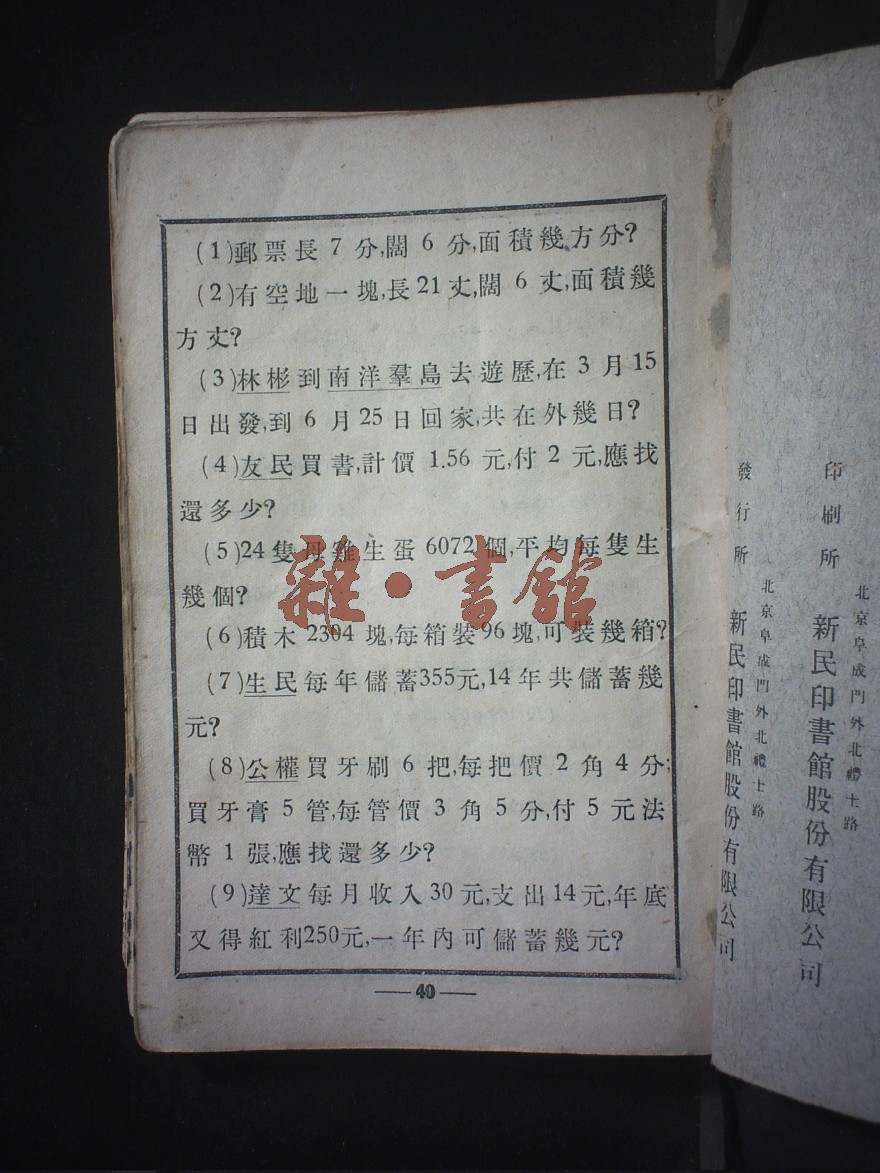 (1)郵票長7分,闊6分,面積幾方分?
(2)有空地一塊,長21丈,闊6丈,面積幾
方丈?
(3)林彬到南洋羣島去遊歷,在3月15
日出發,到6月25日回家,共在外幾日?
(4)友民買書,計價1.56元,付2元,應找
還多少?
(5)24隻母雞生蛋6072個,平均每隻生
幾個?
(6)積木2304塊,每箱裝96塊,可裝幾箱?
(7)生民每年儲蓄355元,14年共儲蓄幾
元?
(8)公權買牙刷6把,每把價2角4分;
買牙膏5管,每管價3角5分,付5元法
幣1張,應找還多少?
(9)達文每月收入30元,支出14元,年底
又得紅利250元,一年內可儲蓄幾元?
—40—
雜·書館
印刷所
北京阜成門外北禮士路
新民印書館股份有限公司
發行所
北京阜成門外北禮士路
新民印書館股份有限公司